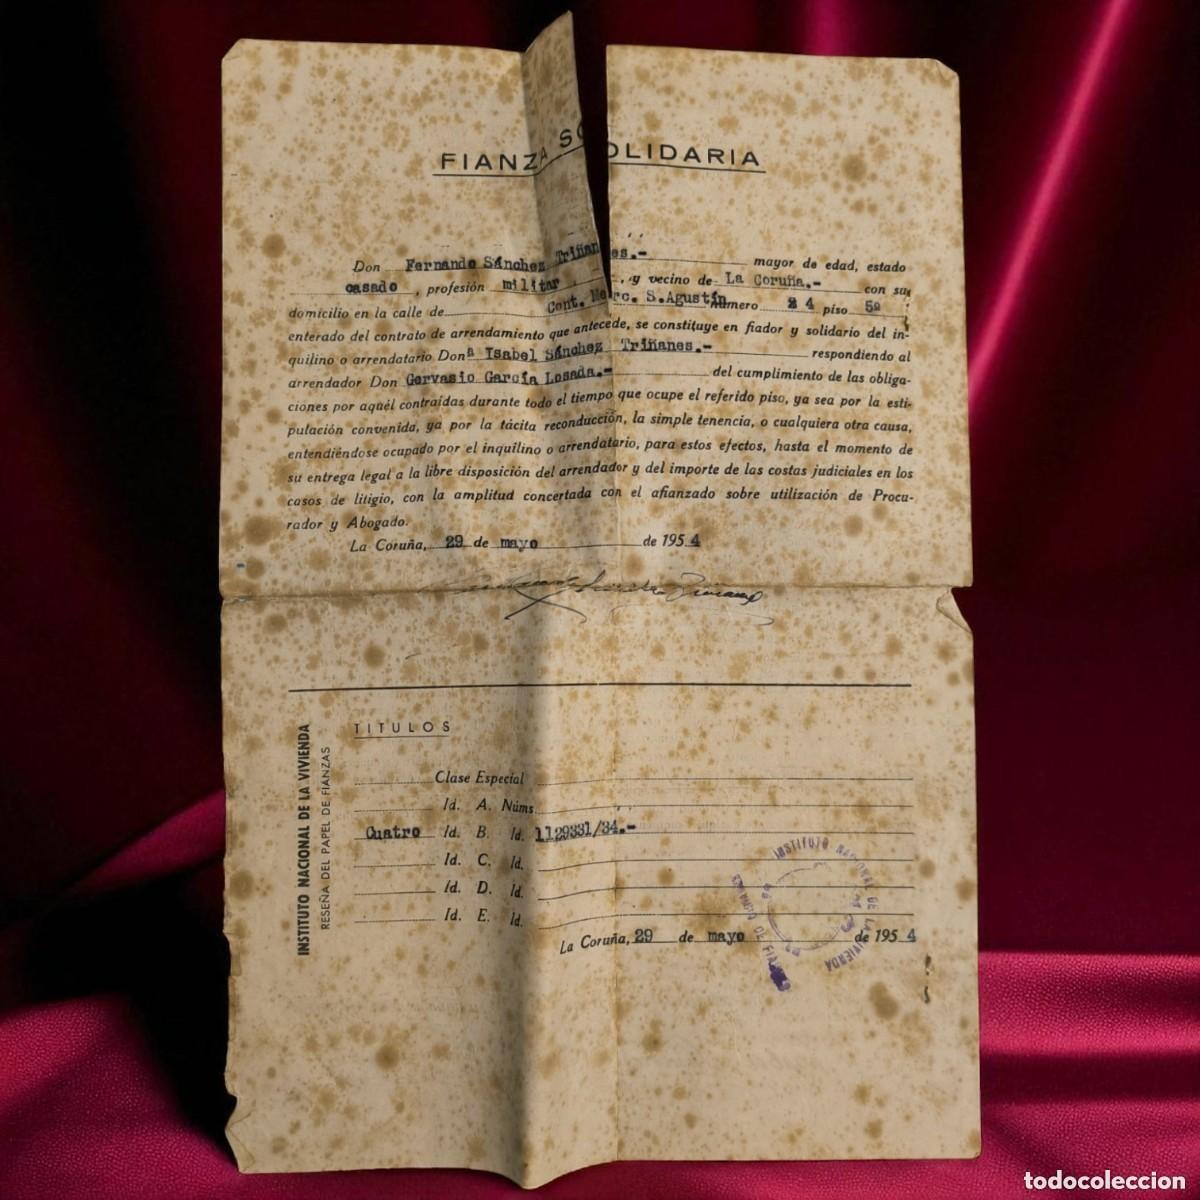 FIANZA SOLIDARIA
Don Fernando Sánchez Triñanes.- mayor de edad, estado
casado, profesión militar, y vecino de La Coruña.- con su
domicilio en la calle de Cont. Merc. S.Agustín número 24 piso 5º
enterado del contrato de arrendamiento que antecede, se constituye en fiador y solidario del in-
quilino o arrendatario Donª Ysabel Sánchez Triñanes.- respondiendo al
arrendador Don Gervasio García Losada.- del cumplimiento de las obliga-
ciones por aquél contraídas durante todo el tiempo que ocupe el referido piso, ya sea por la esti-
pulación convenida, ya por la tácita reconducción, la simple tenencia, o cualquiera otra causa,
entendiéndose ocupado por el inquilino o arrendatario, para estos efectos, hasta el momento de
su entrega legal a la libre disposición del arrendador y del importe de las costas judiciales en los
casos de litigio, con la amplitud concertada con el afianzado sobre utilización de Procu-
rador y Abogado.
La Coruña, 29 de mayo de 1954
INSTITUTO NACIONAL DE LA VIVIENDA
RESEÑA DEL PAPEL DE FIANZAS
TITULOS
Clase Especial
Id. A. Núms.
Cuatro Id. B. Id. 1129331/34.-
Id. C. Id.
Id. D. Id.
Id. E. Id.
La Coruña, 29 de mayo de 1954
INSTITUTO NACIONAL DE LA VIVIENDA
todocoleccion